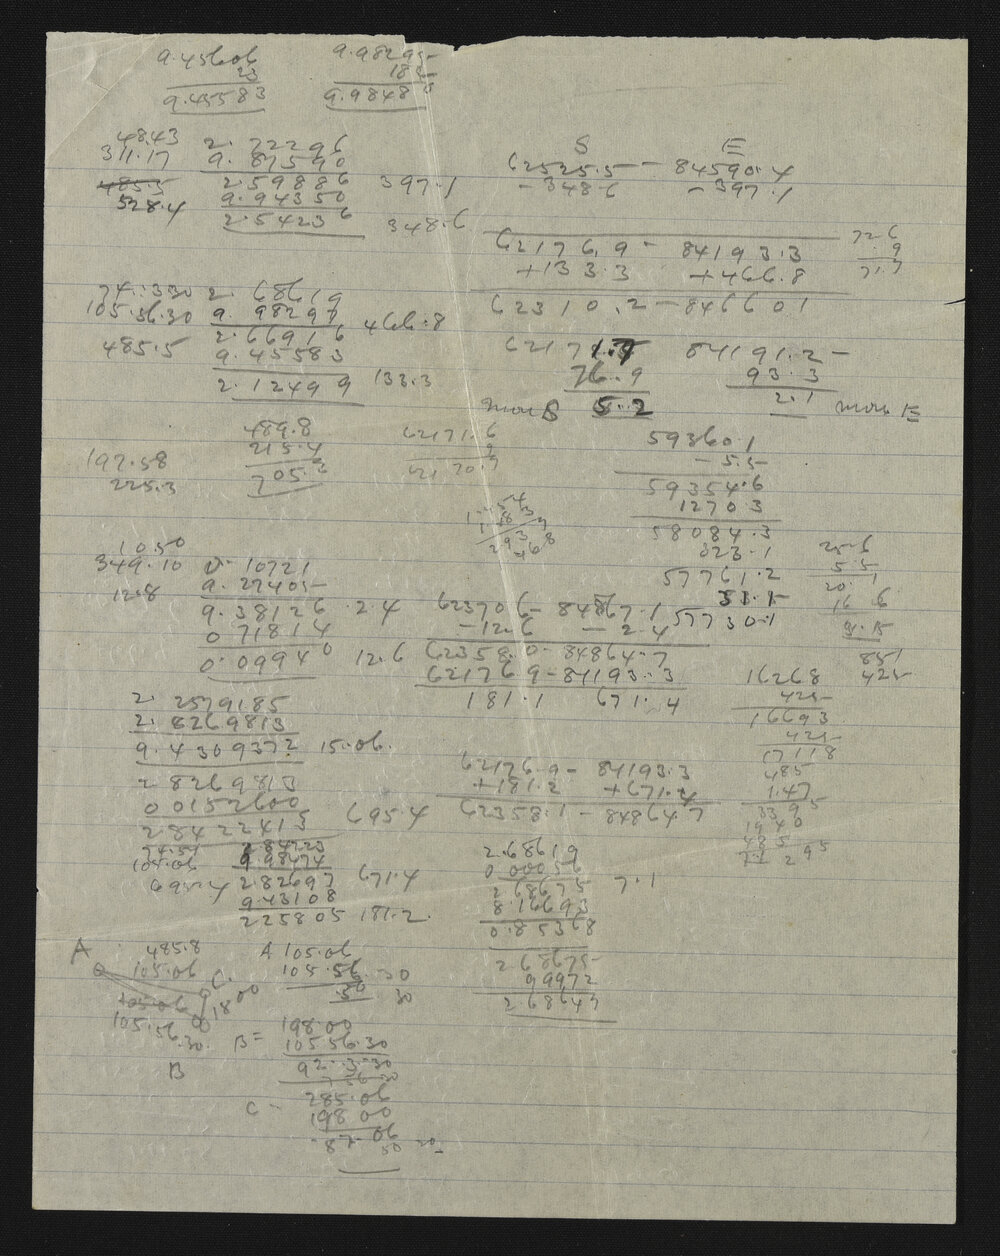 9.45606
23
9.45583
9.9848
48.43
311.17
528.4
2. 72296
9. 87590
2.59886
9.94350
2.54236
397.1
348.6
S E
62525.5 - 84590.4
- 348.6 - 397.1
62176.9 - 84193.3
+133.3 +466.8
62310.2 - 84660.1
72.6
.9
71.7
105.36.30
485.5
2. 68619
9. 98297
2.66916
9.45583
2.12499
466.8
133.3
76.9
5.2
84191.2 -
93.3
2.1
more E
197.58
225.3
489.8
215.4
705.2
62171.6
9
62170.7
59360.1
- 5.5
59354.6
1270.3
58084.3
323.1
57761.2
31.1
57730.1
10.50
349.10
12.8
0. 10721
9. 27405
9.38126
0 71814
0.09940
2.4
12.6
62370.6 - 84867.1
- 12.6 - 2.4
62358.0 - 84864.7
62176.9 - 84193.3
181.1 671.4
25.6
5.5
20.1
851
425
16268
425
16693
425
17118
485
1.47
3395
1940
485
2. 2579185
2. 8269813
9.4309372
15.06.
2 8269813
0 0152600
2.8422413
695.4
62176.9 - 84193.3
+181.2 +671.4
62358.1 - 84864.7
74.54
105.06
695.4
2.84223
9.98474
2.82697
9.43108
2.25805
671.4
181.2.
2.68619
0.00056
2 68675
8.16693
0.85368
7.1
2 68675
9.9972
2 68647
A
485.8
105.06
C.
18 00
105.56.30.
B
A 105.06
105.56.30
50 30
B = 198 00
105 56.30
92..3.30
C - 285.06
198 00
87 06
50